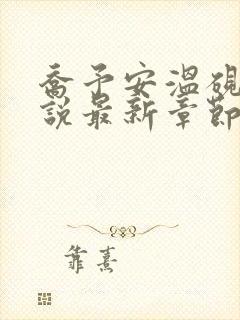 喬予安溫硯
說最新章節
靠熹